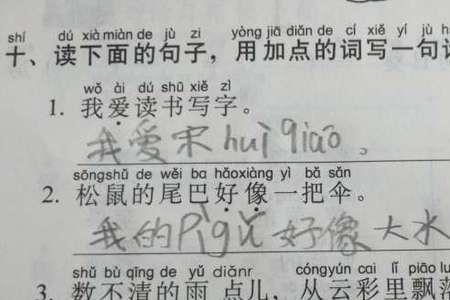 shí dú xià miàn de jù zi yòng jiā diǎn de cí xiě yí jù h
十、读下面的句子，用加点的词写一句
wǒ ài dú shū xiě zì
1. 我爱读书写字。
我爱宋huì qiáo。
sōngshǔ de wěi ba hǎoxiàng yì bǎ sǎn
2. 松鼠的尾巴好像一把伞。
我的Pìgǔ好像大水
shǔ bù qīng de yǔ diǎnr cóngyún cai lǐ piāo lu
3. 数不清的雨点儿，从云彩里飘落